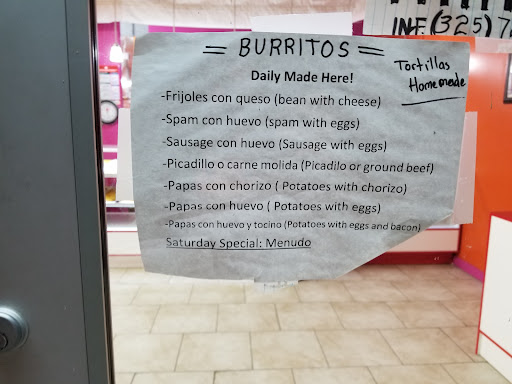 INF. (325) 7
= BURRITOS =
Tortillas
Homemade
Daily Made Here!
-Frijoles con queso (bean with cheese)
-Spam con huevo (spam with eggs)
-Sausage con huevo (Sausage with eggs)
-Picadillo o carne molida (Picadilo or ground beef)
-Papas con chorizo ( Potatoes with chorizo)
-Papas con huevo ( Potatoes with eggs)
-Papas con huevo y tocino (Potatoes with eggs and bacon)
Saturday Special: Menudo